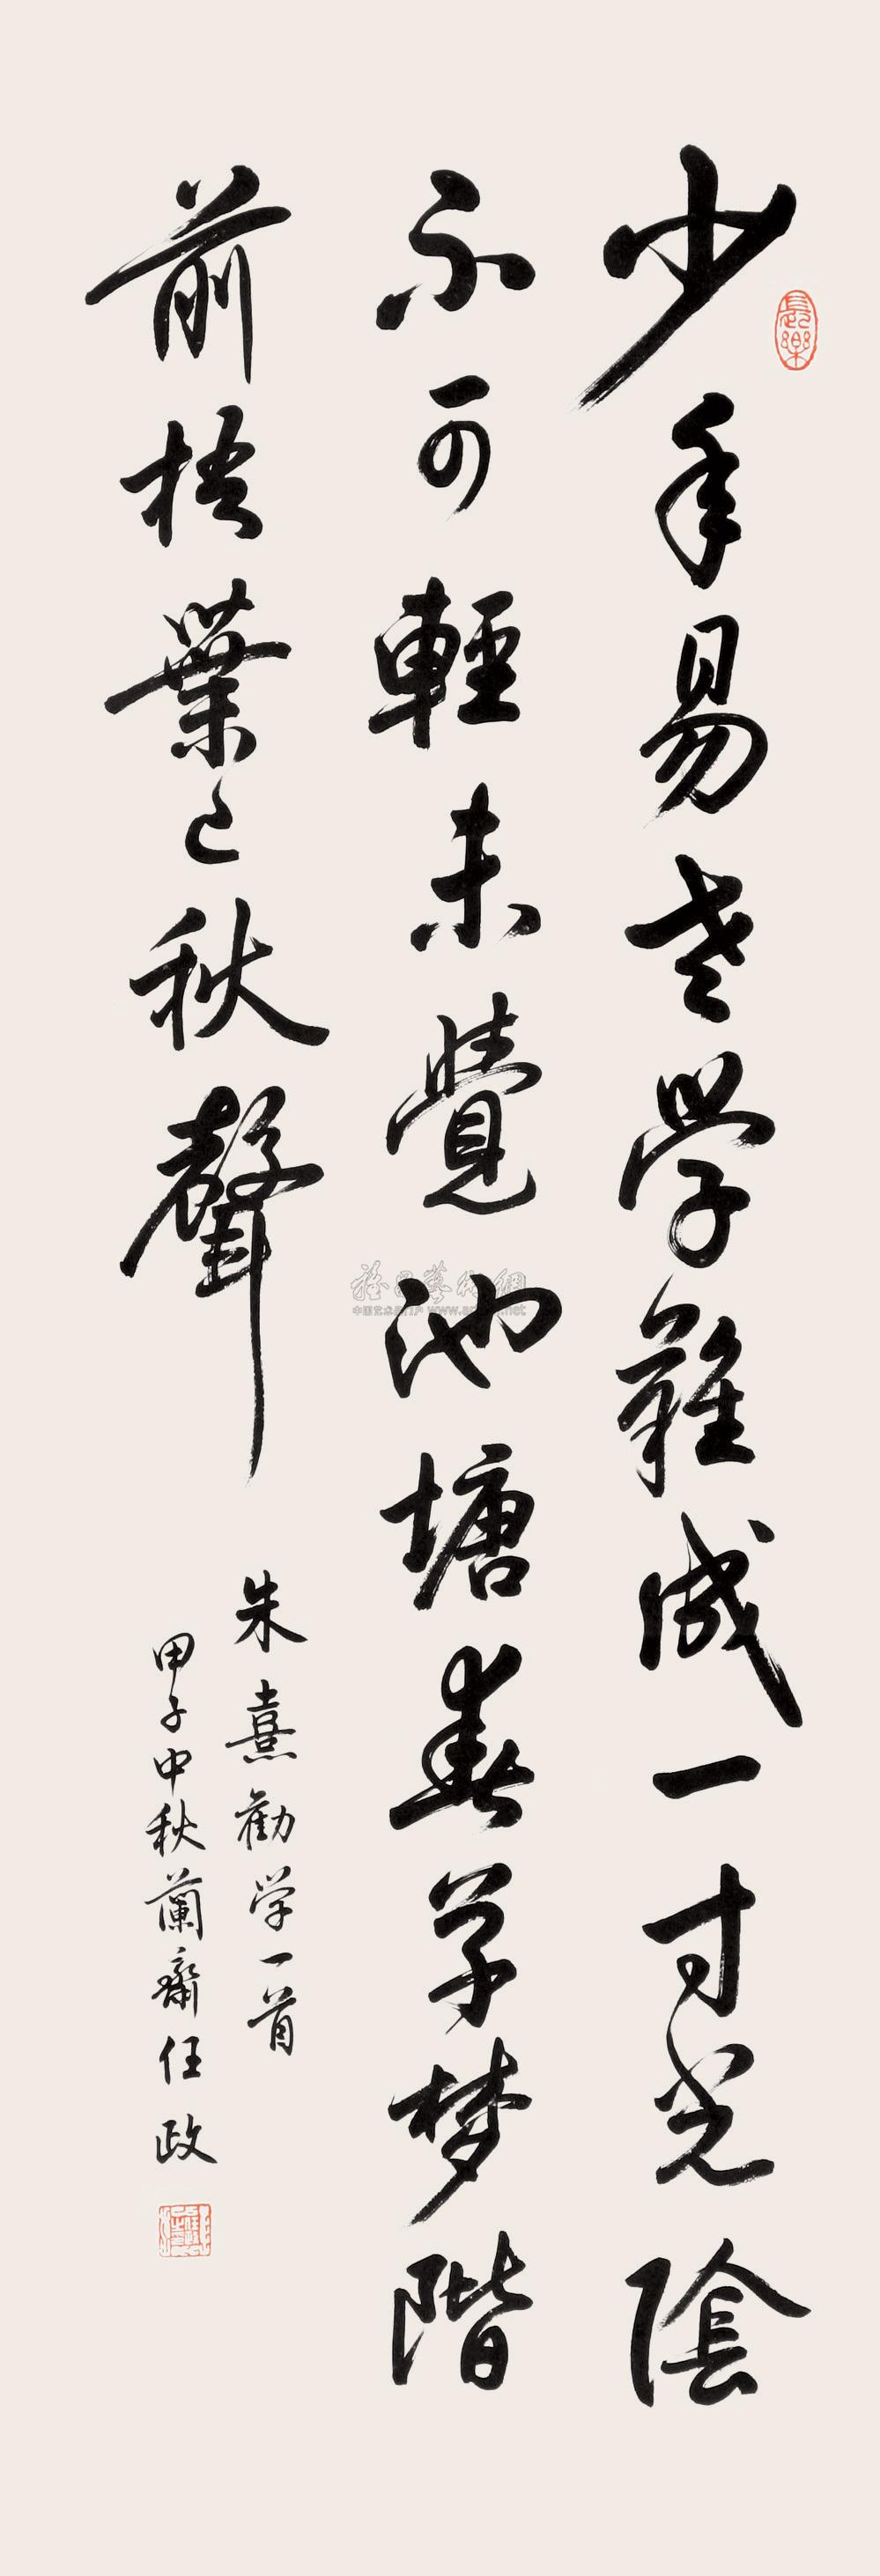 少年易老学難成一寸光陰
不可輕未覺池塘春草梦階
前梧葉已秋聲
朱熹勸学一首
甲子中秋蘭齋任政
長樂
中国艺术品门户 www.